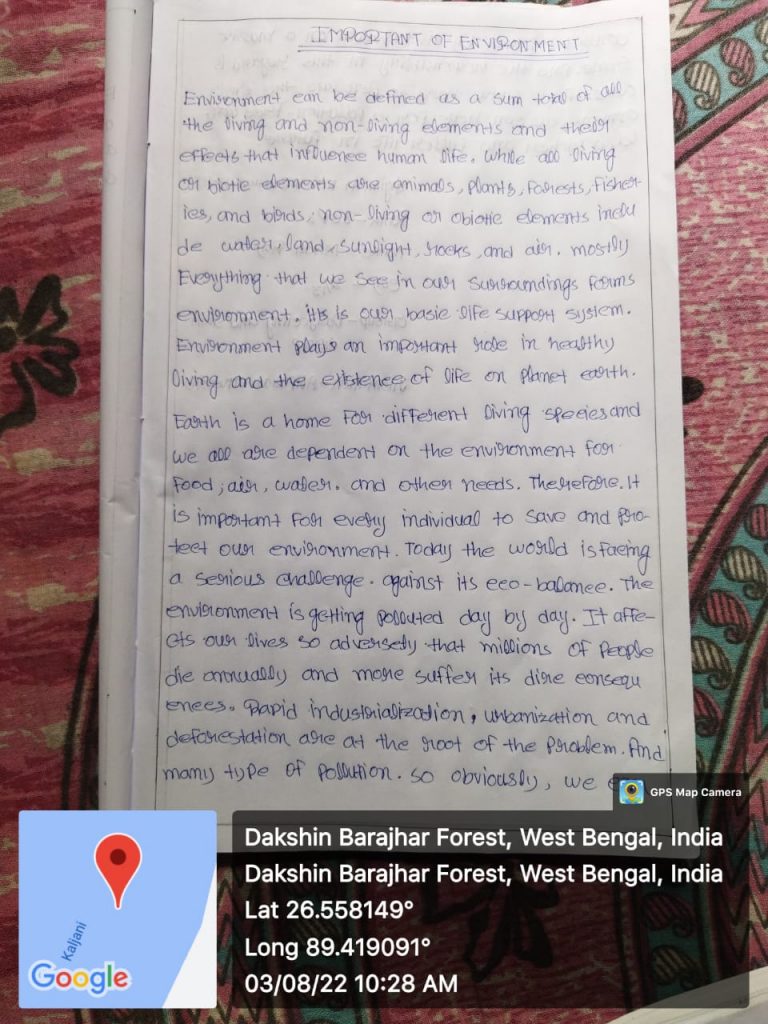 IMPORTANT OF ENVIRONMENT
Environment can be defined as a sum total of all
the living and non-living elements and their
effects that influence human life. While all living
or biotic elements are animals, plants, forests, fisher-
ies, and birds, non-living or abiotic elements inclu
de water, land, sunlight, rocks, and air. mostly
Everything that we see in our surroundings forms
environment. its is our basic life support system.
Environment plays an important role in healthy
living and the existence of life on planet earth.
Earth is a home for different living species and
we all are dependent on the environment for
food, air, water. and other needs. Therefore. It
is important for every individual to save and pro-
tect our environment. Today the world is facing
a serious challenge. against its eco-balance. The
environment is getting polluted day by day. It affe-
cts our lives so adversely that millions of people
die annually and more suffer its dire consequ
ences. Rapid industrialization, urbanization and
deforestation are at the root of the problem. And
many type of pollution. so obviously, we
GPS Map Camera
Dakshin Barajhar Forest, West Bengal, India
Dakshin Barajhar Forest, West Bengal, India
Lat 26.558149°
Long 89.419091°
03/08/22 10:28 AM
Kaljani
Google